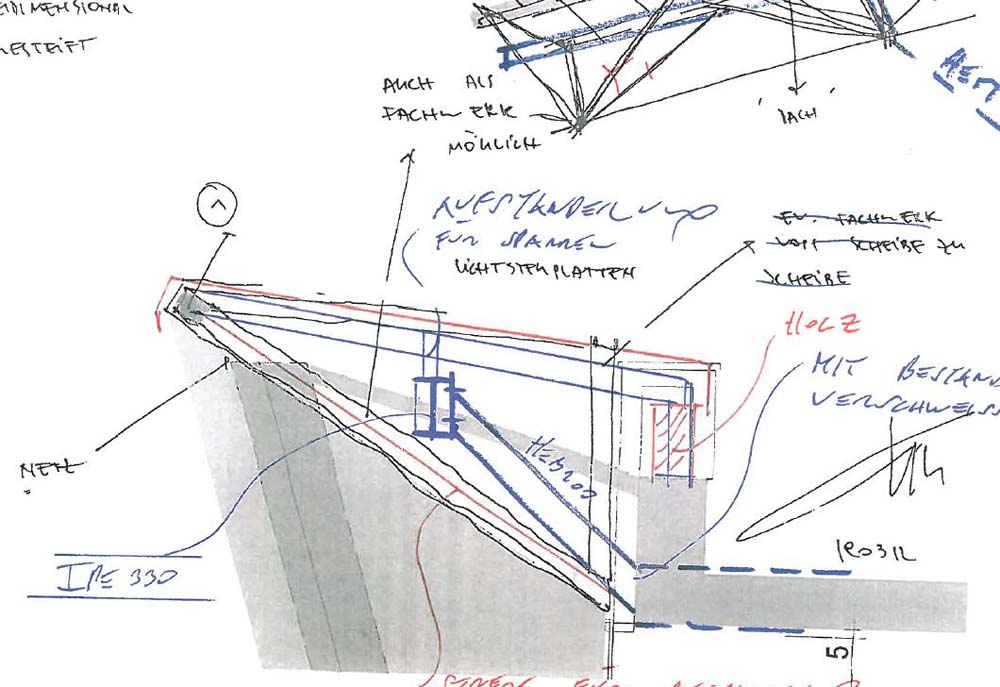 AUCH ALS
FACHWERK
MÖHLICH
'DACH'
AUFSTÄNDERUNG
FÜR SPARREN
LICHTSTEHPLATTEN
EV. FACHWERK
VON SCHEIBE ZU
SCHEIBE
HOLZ
MIT BESTAN
VERSCHWEISS
HEB200
NETZ
IPE 330
5